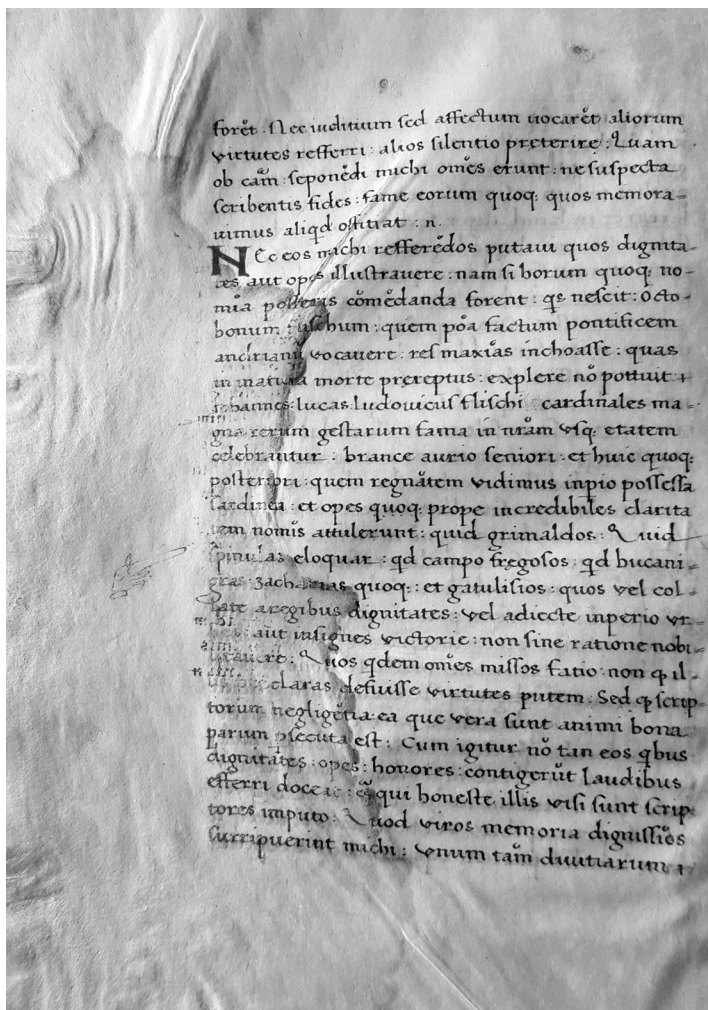 forēt. Nec iuditium sed affectum uocarēt aliorum
virtutes refferri: alios silentio preterire: Quam
ob cām: seponēdi michi om̄es erunt: ne suspecta
scribentis fides: fame eorum quoq: quos memora-
uimus aliqd offitiat: n.
NEc eos michi refferēdos putaui quos dignita-
tes aut opes illustrauere: nam si horum quoq: no-
mīa posteris cōmēdanda forent: qs nescit: Octo-
bonum fuschum: quem pōa factum pontificem
andrianū vocauere: res maxīas inchoasse: quas
in matura morte prereptus: explere nō pottuit +
Iohannes: lucas: ludouicus flischi cardinales ma-
gna rerum gestarum fama in nrām vsq: etatem
celebrantur: brance aurio seniori: et huic quoq:
posteriori: quem regnātem vidimus inpio possessa
Sardinea: et opes quoq: prope incredibiles clarita
tem nomīs attulerunt: quid grimaldos: Quid
spinulas eloquar: qd campo fregosos: qd bucani-
gras: zacharias quoq: et gatulisios: quos vel col-
late aregibus dignitates: vel adiecte inperio vr-
aut insignes victorie: non sine ratione nobi-
litauere: Quos qdem om̄es missos fatio: non q il-
claras defuisse virtutes putem: Sed q scrip-
torum negligētia ea que vera sunt animi bona
parum psecuta est: Cum igitur nō tan eos qbus
dignitates: opes: honores: contigerūt laudibus
efferri doceat: qui honeste illis visi sunt scrip-
tores imputo: Quod viros memoria dignissīos
surripuerint michi: vnum tam̄ diuitiarum +